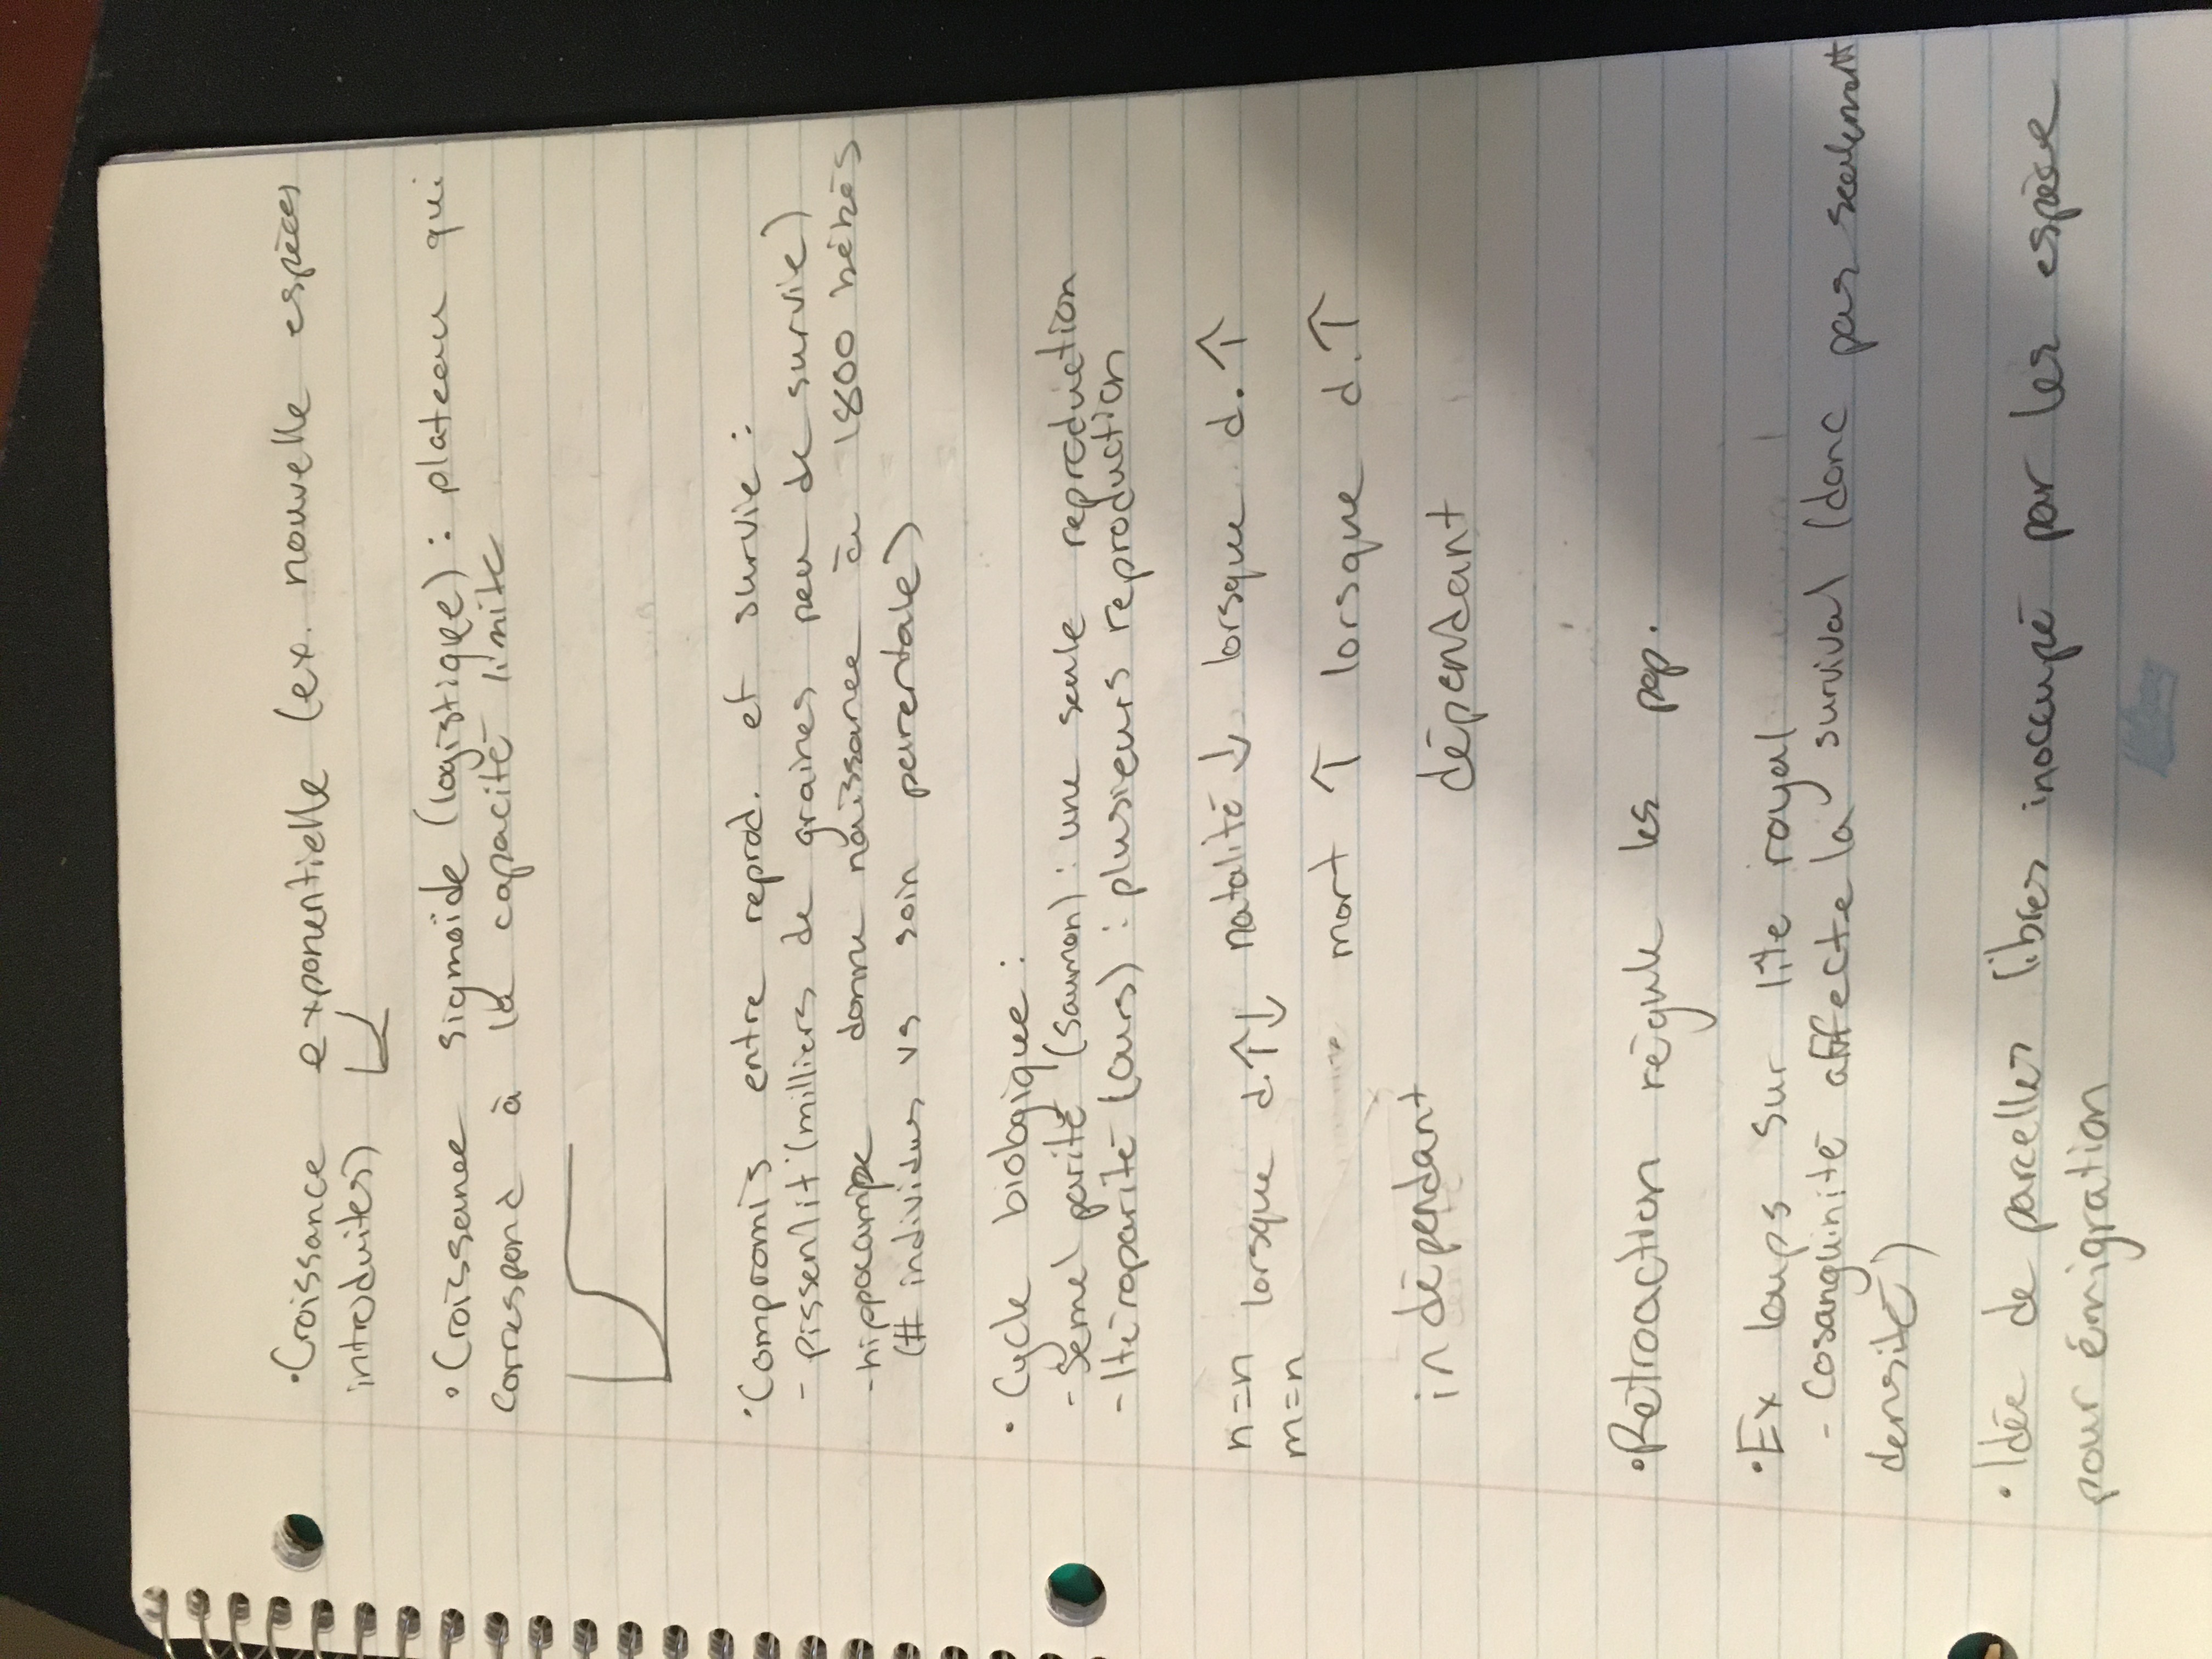 •Croissance exponentielle (ex. nouvelle espèces
introduites)
•Croissance sigmoïde (logistique) : plateau qui
correspond à la capacité limite
•Compromis entre reprod. et survie :
- pissenlit (milliers de graines peu de survie)
-hippocampe donne naissance à 1800 bébés
(# individus vs soin parentale)
• Cycle biologique :
- Semelparité (saumon) : une seule reproduction
- Itéroparité (ours) : plusieurs reproduction
n=n lorsque d.↑↓ natalité ↓ lorsque d.↑
m=n mort ↑ lorsque d.↑
indépendant dépendant
•Rétroaction régule les pop.
•Ex loups sur l'île royal
- Cosanguinité affecte la survival (donc pas seulement
densité)
• Idée de parcelles libres inocupé par les espèce
pour émigration